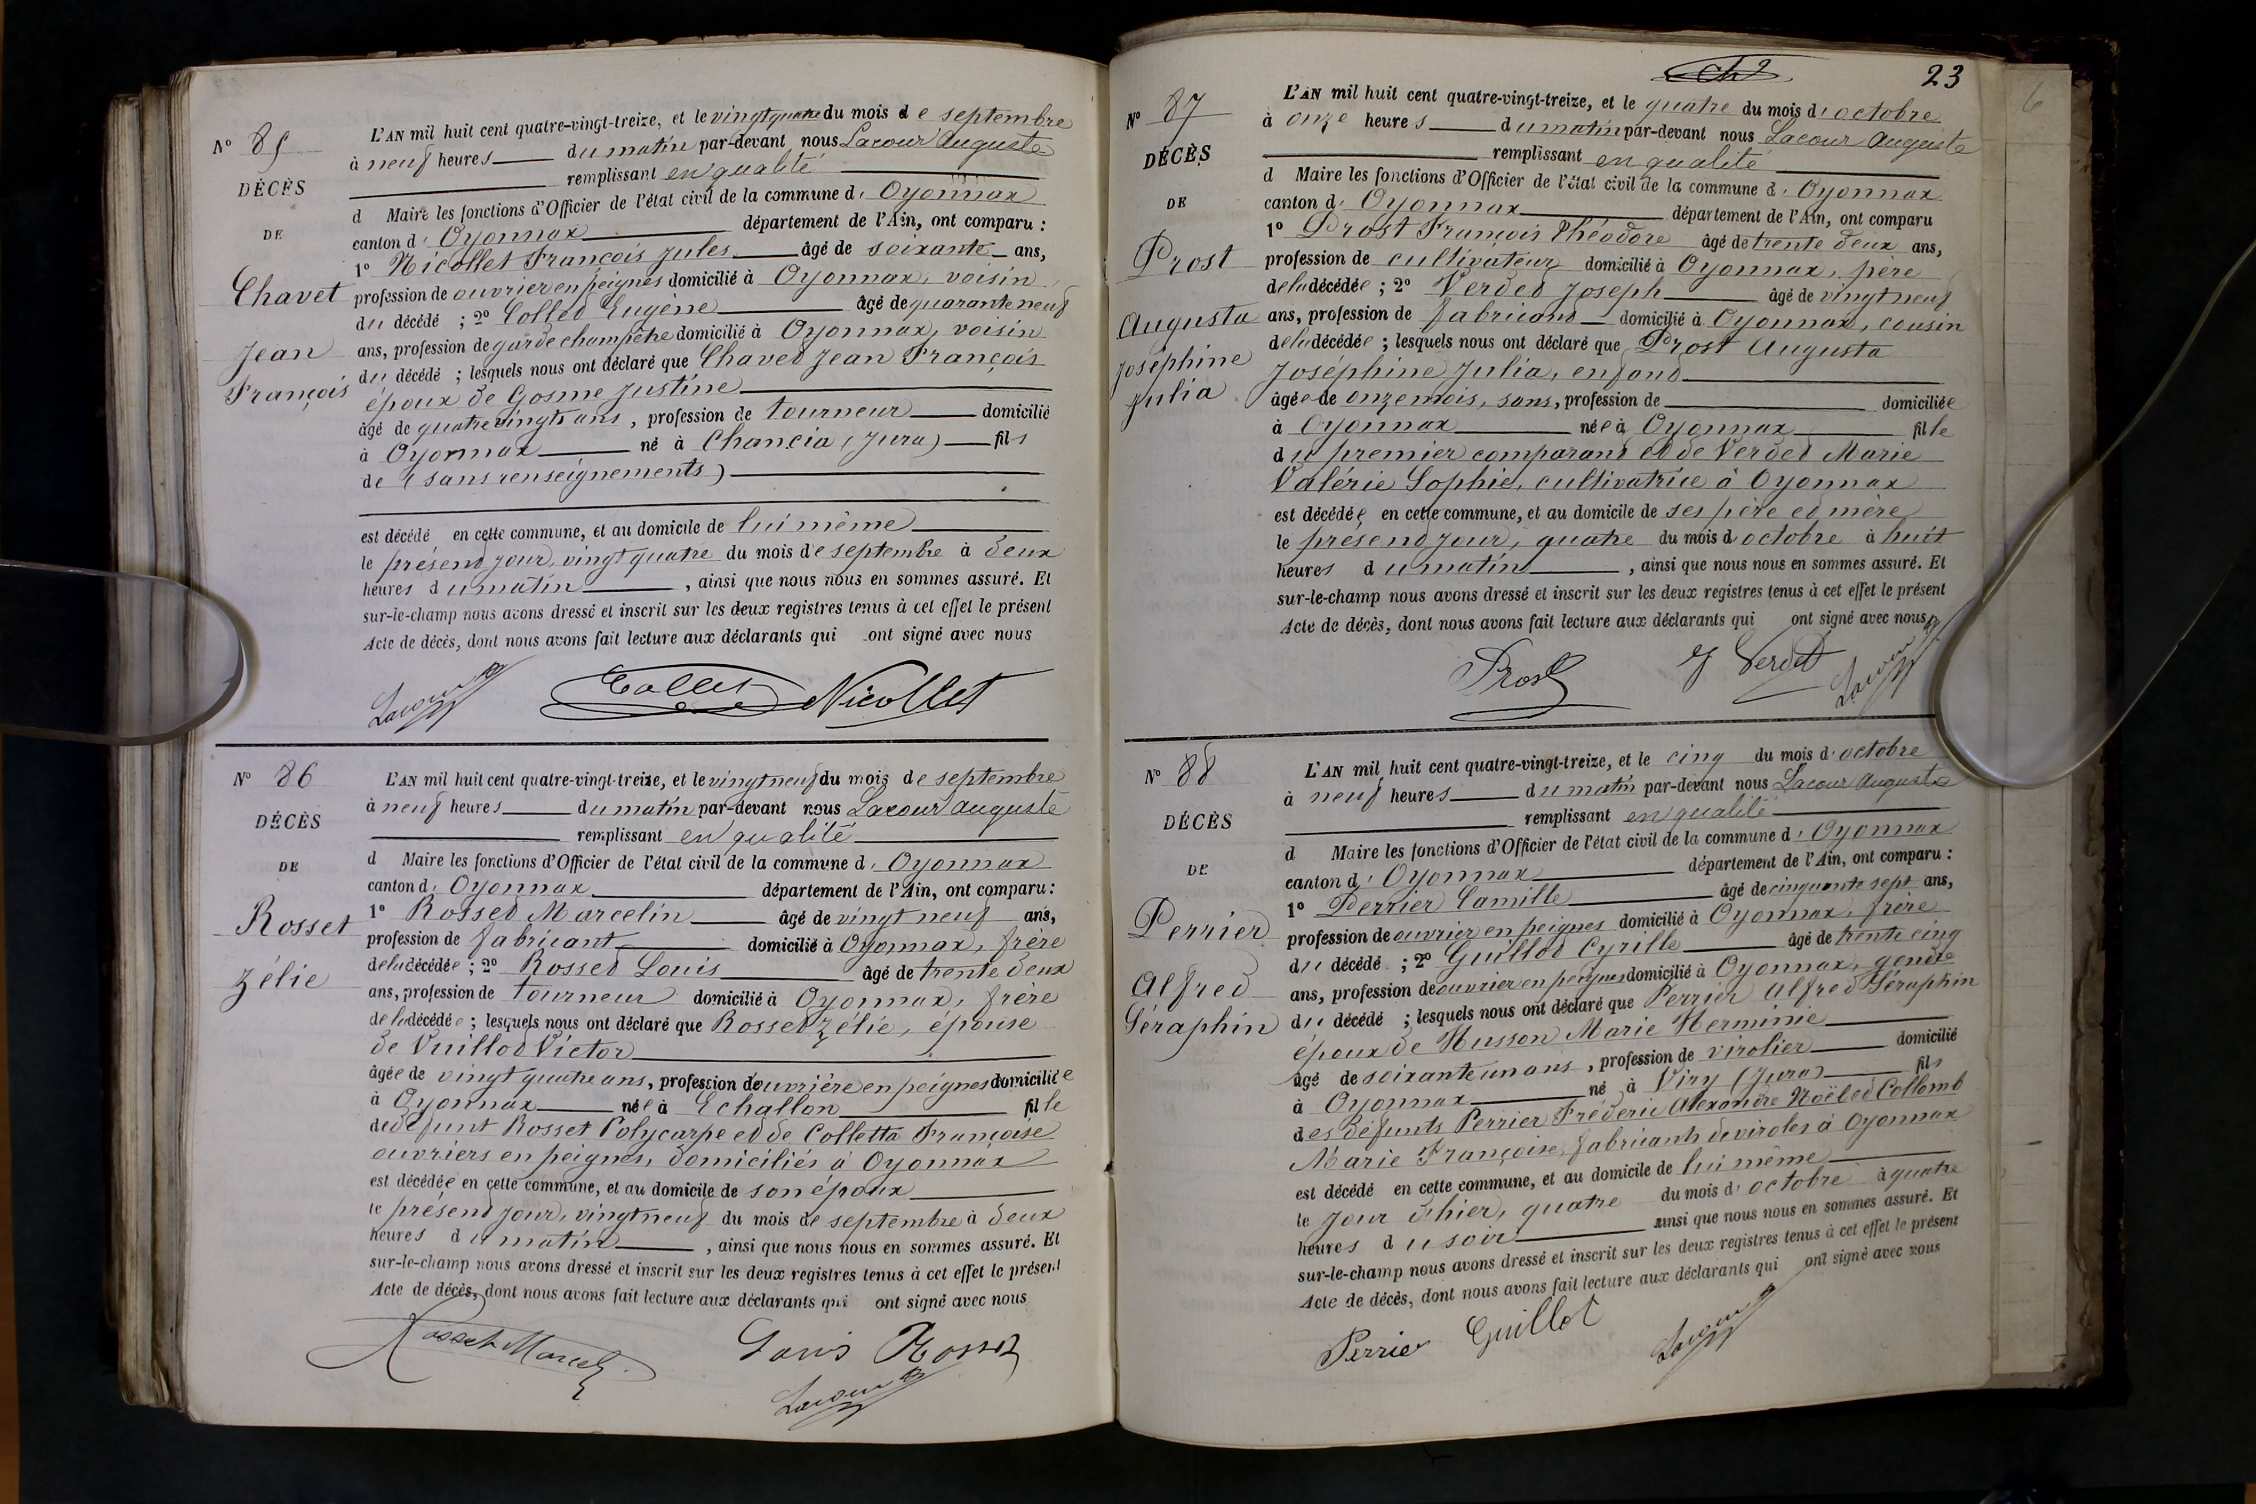 N° 85
DÉCÈS
DE
Chavet
Jean
François
L'AN mil huit cent quatre-vingt-treize, et le vingt quatre du mois de septembre
à neuf heures du matin par-devant nous Lacour Auguste
remplissant en qualité
d Maire les fonctions d'Officier de l'état civil de la commune d'Oyonnax
canton d'Oyonnax département de l'Ain, ont comparu :
1° Nicollet François Jules âgé de soixante ans,
profession de ouvrier en peignes domicilié à Oyonnax, voisin
du décédé ; 2° Collet Eugène âgé de quarante neuf
ans, profession de garde champêtre domicilié à Oyonnax, voisin
du décédé ; lesquels nous ont déclaré que Chavet Jean François
époux de Gosme Justine
âgé de quatre vingts ans, profession de tourneur domicilié
à Oyonnax né à Chancia (Jura) fils
de (sans renseignements)
est décédé en cette commune, et au domicile de lui même
le présent jour, vingt quatre du mois de septembre à deux
heures du matin, ainsi que nous nous en sommes assuré. Et
sur-le-champ nous avons dressé et inscrit sur les deux registres tenus à cet effet le présent
Acte de décès, dont nous avons fait lecture aux déclarants qui ont signé avec nous
Lacour Collet Nicollet
N° 86
DÉCÈS
DE
Rosset
Zélie
L'AN mil huit cent quatre-vingt-treize, et le vingt neuf du mois de septembre
à neuf heures du matin par-devant nous Lacour Auguste
remplissant en qualité
d Maire les fonctions d'Officier de l'état civil de la commune d'Oyonnax
canton d'Oyonnax département de l'Ain, ont comparu :
1° Rosset Marcelin âgé de vingt neuf ans,
profession de fabricant domicilié à Oyonnax, frère
de la décédée ; 2° Rosset Louis âgé de trente deux
ans, profession de tourneur domicilié à Oyonnax, frère
de la décédée ; lesquels nous ont déclaré que Rosset Zélie, épouse
de Vuillod Victor
âgée de vingt quatre ans, profession d'ouvrière en peignes domiciliée
à Oyonnax née à Echallon fille
de défunt Rosset Polycarpe et de Colletta Françoise
ouvriers en peignes, domiciliés à Oyonnax
est décédée en cette commune, et au domicile de son époux
le présent jour, vingt neuf du mois de septembre à deux
heures du matin, ainsi que nous nous en sommes assuré. Et
sur-le-champ nous avons dressé et inscrit sur les deux registres tenus à cet effet le présent
Acte de décès, dont nous avons fait lecture aux déclarants qui ont signé avec nous
Rosset Marcel Louis Rosset
Lacour
23
N° 87
DÉCÈS
DE
Prost
Augusta
Joséphine
Julia
L'AN mil huit cent quatre-vingt-treize, et le quatre du mois d'octobre
à onze heures du matin par-devant nous Lacour Auguste
remplissant en qualité
d Maire les fonctions d'Officier de l'état civil de la commune d'Oyonnax
canton d'Oyonnax département de l'Ain, ont comparu
1° Prost François Théodore âgé de trente deux ans,
profession de cultivateur domicilié à Oyonnax, père
de la décédée ; 2° Verdet Joseph âgé de vingt neuf
ans, profession de fabricant domicilié à Oyonnax, cousin
de la décédée ; lesquels nous ont déclaré que Prost Augusta
Joséphine Julia, enfant
âgée de onze mois, sans, profession de domiciliée
à Oyonnax née à Oyonnax fille
du premier comparant et de Verdet Marie
Valérie Sophie, cultivatrice à Oyonnax
est décédée en cette commune, et au domicile de ses père et mère
le présent jour, quatre du mois d'octobre à huit
heures du matin, ainsi que nous nous en sommes assuré. Et
sur-le-champ nous avons dressé et inscrit sur les deux registres tenus à cet effet le présent
Acte de décès, dont nous avons fait lecture aux déclarants qui ont signé avec nous
Prost J Verdet Lacour
N° 88
DÉCÈS
DE
Perrier
Alfred
Séraphin
L'AN mil huit cent quatre-vingt-treize, et le cinq du mois d'octobre
à neuf heures du matin par-devant nous Lacour Auguste
remplissant en qualité
d Maire les fonctions d'Officier de l'état civil de la commune d'Oyonnax
canton d'Oyonnax département de l'Ain, ont comparu :
1° Perrier Camille âgé de cinquante sept ans,
profession de ouvrier en peignes domicilié à Oyonnax, frère
du décédé ; 2° Guillot Cyrille âgé de trente cinq
ans, profession de ouvrier en peignes domicilié à Oyonnax, gendre
du décédé ; lesquels nous ont déclaré que Perrier Alfred Séraphin
époux de Husson Marie Herminie
âgé de soixante un ans, profession de virolier domicilié
à Oyonnax né à Viry (Jura) fils
des défunts Perrier Fréderic Alexandre Noël et Collomb
Marie Françoise, fabricants de viroles à Oyonnax
est décédé en cette commune, et au domicile de lui même
le jour d'hier, quatre du mois d'octobre à quatre
heures du soir ainsi que nous nous en sommes assuré. Et
sur-le-champ nous avons dressé et inscrit sur les deux registres tenus à cet effet le présent
Acte de décès, dont nous avons fait lecture aux déclarants qui ont signé avec nous
Perrier Guillot Lacour